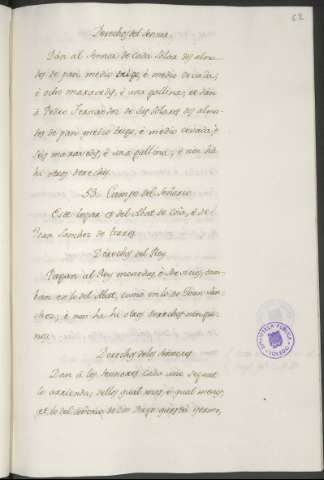 62
Derechos del Sennor.
Dan al Sennor de cada solar dos almu-
des de pan, medio trigo, é medio cevada;
é ocho maravedis, é una gallina; et dan
á Pedro Fernandez de sus solares dos almu-
des de pan medio trigo, é medio cevada; é
seis maravedis, é una gallina; é non há
hi otros derechos.
53. Campo del
Este logar es del Abat de Oña, é de
Joan Sanchez de
Derechos del Rey
Pagan al Rey monedas, é servicios, tam-
bien en lo del Abat, como en lo de Joan San-
chez; é non ha hi otros derechos ningu-
nos.
Derechos de los Sennores
Dan á los Sennores cada uno segunt
lo arrienda, dellos qual mas, é qual menos,
et lo del señorio, de Don Diego
BIBLIOTECA PUBLICA
TOLEDO